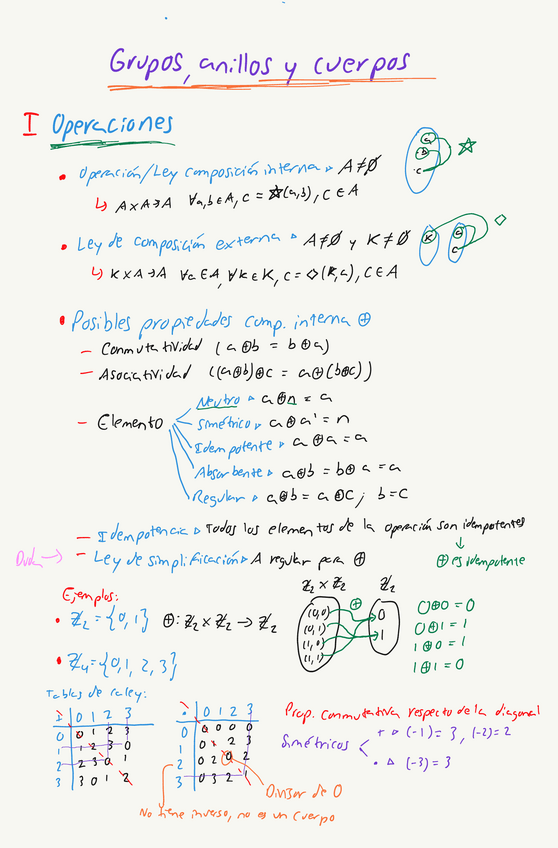 Grupos, anillos y cuerpos
I Operaciones
• Operación/Ley composición interna ▹ A≠∅
↳ A×A→A ∀a,b∈A, c = ☆(a,b), c∈A
a
b
c
☆
• Ley de composición externa ▹ A≠∅ y K≠∅
↳ K×A→A ∀a∈A, ∀k∈K, c = ◇(k,a), c∈A
K
a
c
◇
• Posibles propiedades comp. interna ⊕
– Conmutatividad (a⊕b = b⊕a)
– Asociatividad ((a⊕b)⊕c = a⊕(b⊕c))
– Elemento
Neutro ▹ a⊕n = a
Simétrico ▹ a⊕a' = n
Idempotente ▹ a⊕a = a
Absorbente ▹ a⊕b = b⊕a = a
Regular ▹ a⊕b = a⊕c ; b=c
– Idempotencia ▹ Todos los elementos de la operación son idempotentes
↓
⊕ es idempotente
Duda → – Ley de simplificación ▹ A regular para ⊕
Ejemplos:
• ℤ₂ = {0,1} ⊕: ℤ₂×ℤ₂ → ℤ₂
ℤ₂×ℤ₂ ℤ₂
⊕
(0,0)
(0,1)
(1,0)
(1,1)
0
1
0⊕0 = 0
0⊕1 = 1
1⊕0 = 1
1⊕1 = 0
• ℤ₄ = {0,1,2,3}
Tablas de la ley:
+ 0 1 2 3
0 0 1 2 3
1 1 2 3 0
2 2 3 0 1
3 3 0 1 2
· 0 1 2 3
0 0 0 0
0 1 2 3
0 2 0 2
0 3 2 1
Prop. conmutativa respecto de la diagonal
Simétricos
+ ▹ (-1) = 3, (-2) = 2
· ▹ (-3) = 3
Divisor de 0
No tiene inverso, no es un cuerpo